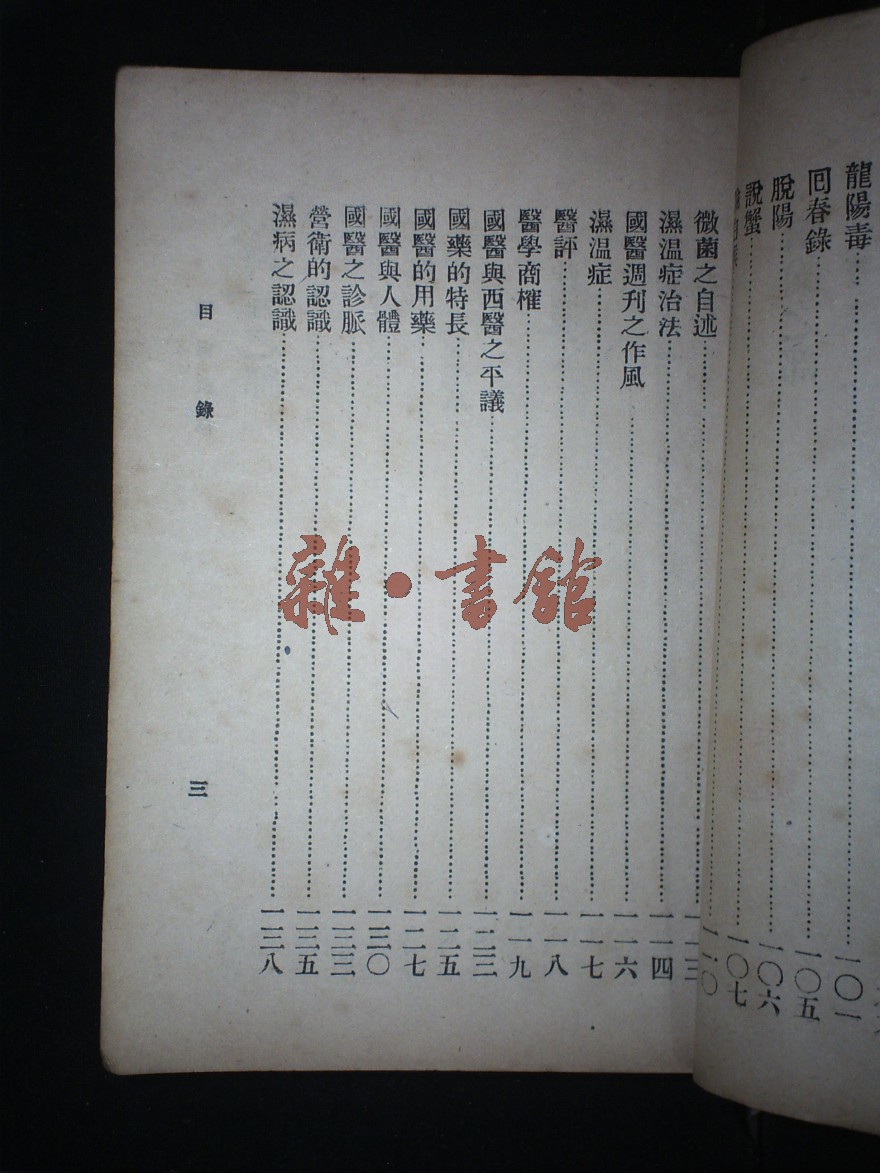 龍陽毒……一〇一
回春錄……一〇五
脫陽……一〇六
說蟹……一〇七
一一〇
微菌之自述……一一三
濕温症治法……一一四
國醫週刊之作風……一一六
濕温症……一一七
醫評……一一八
醫學商榷……一一九
國醫與西醫之平議……一二三
國藥的特長……一二五
國醫的用藥……一二七
國醫與人體……一三〇
國醫之診脈……一三三
營衛的認識……一三五
濕病之認識……一三八
目錄
三
雜·書館